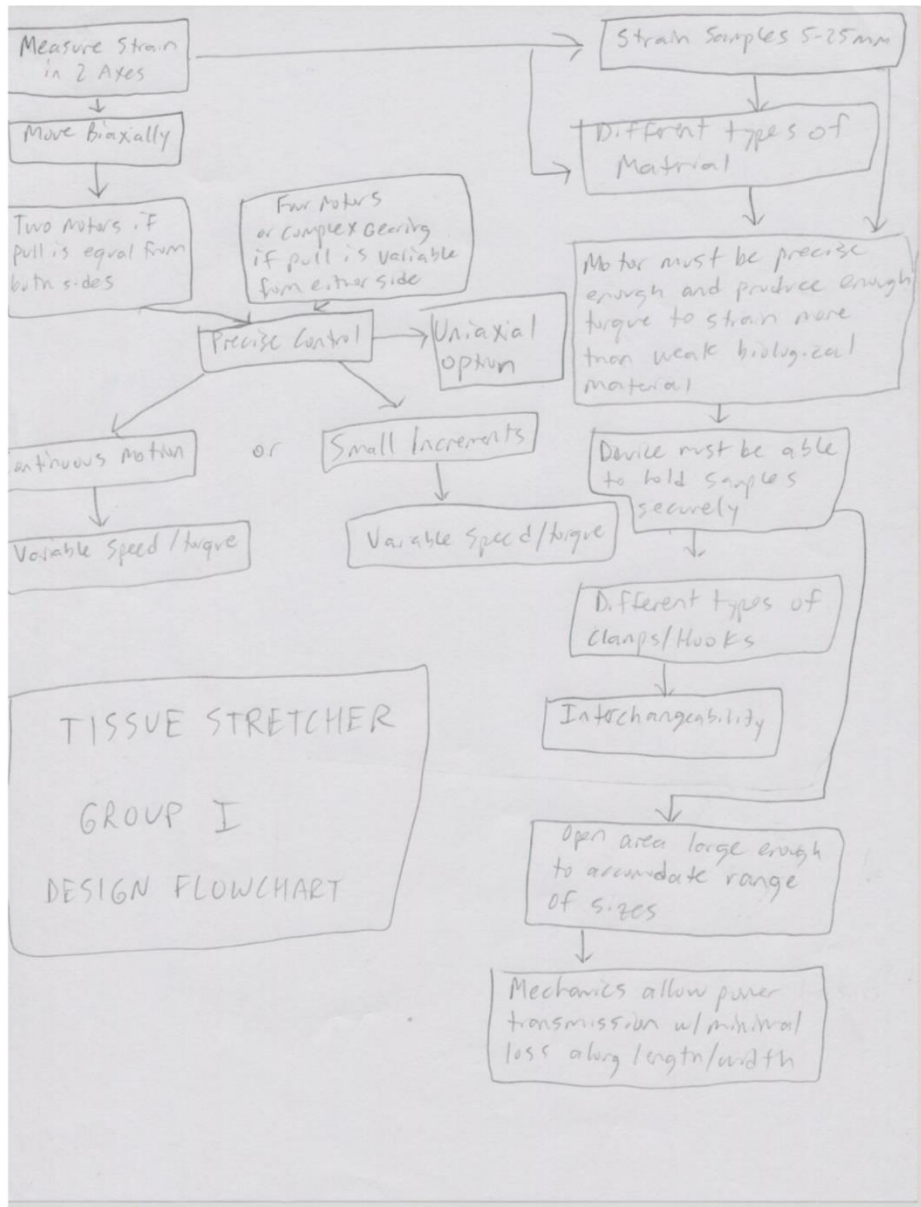 Measure Strain
in 2 Axes
Move Biaxially
Two motors if
pull is equal from
both sides
Four motors
or complex Gearing
if pull is variable
from either side
Precise Control
Uniaxial
option
ontinuous motion
or
Small Increments
Variable Speed/torque
Variable Speed/torque
TISSUE STRETCHER
GROUP I
DESIGN FLOWCHART
Strain Samples 5-25mm
Different types of
Material
Motor must be precise
enough and produce enough
torque to strain more
than weak biological
material
Device must be able
to hold samples
securely
Different types of
Clamps/Hooks
Interchangeability
Open area large enough
to accomidate range
of sizes
Mechanics allow power
transmission w/minimal
loss along length/width